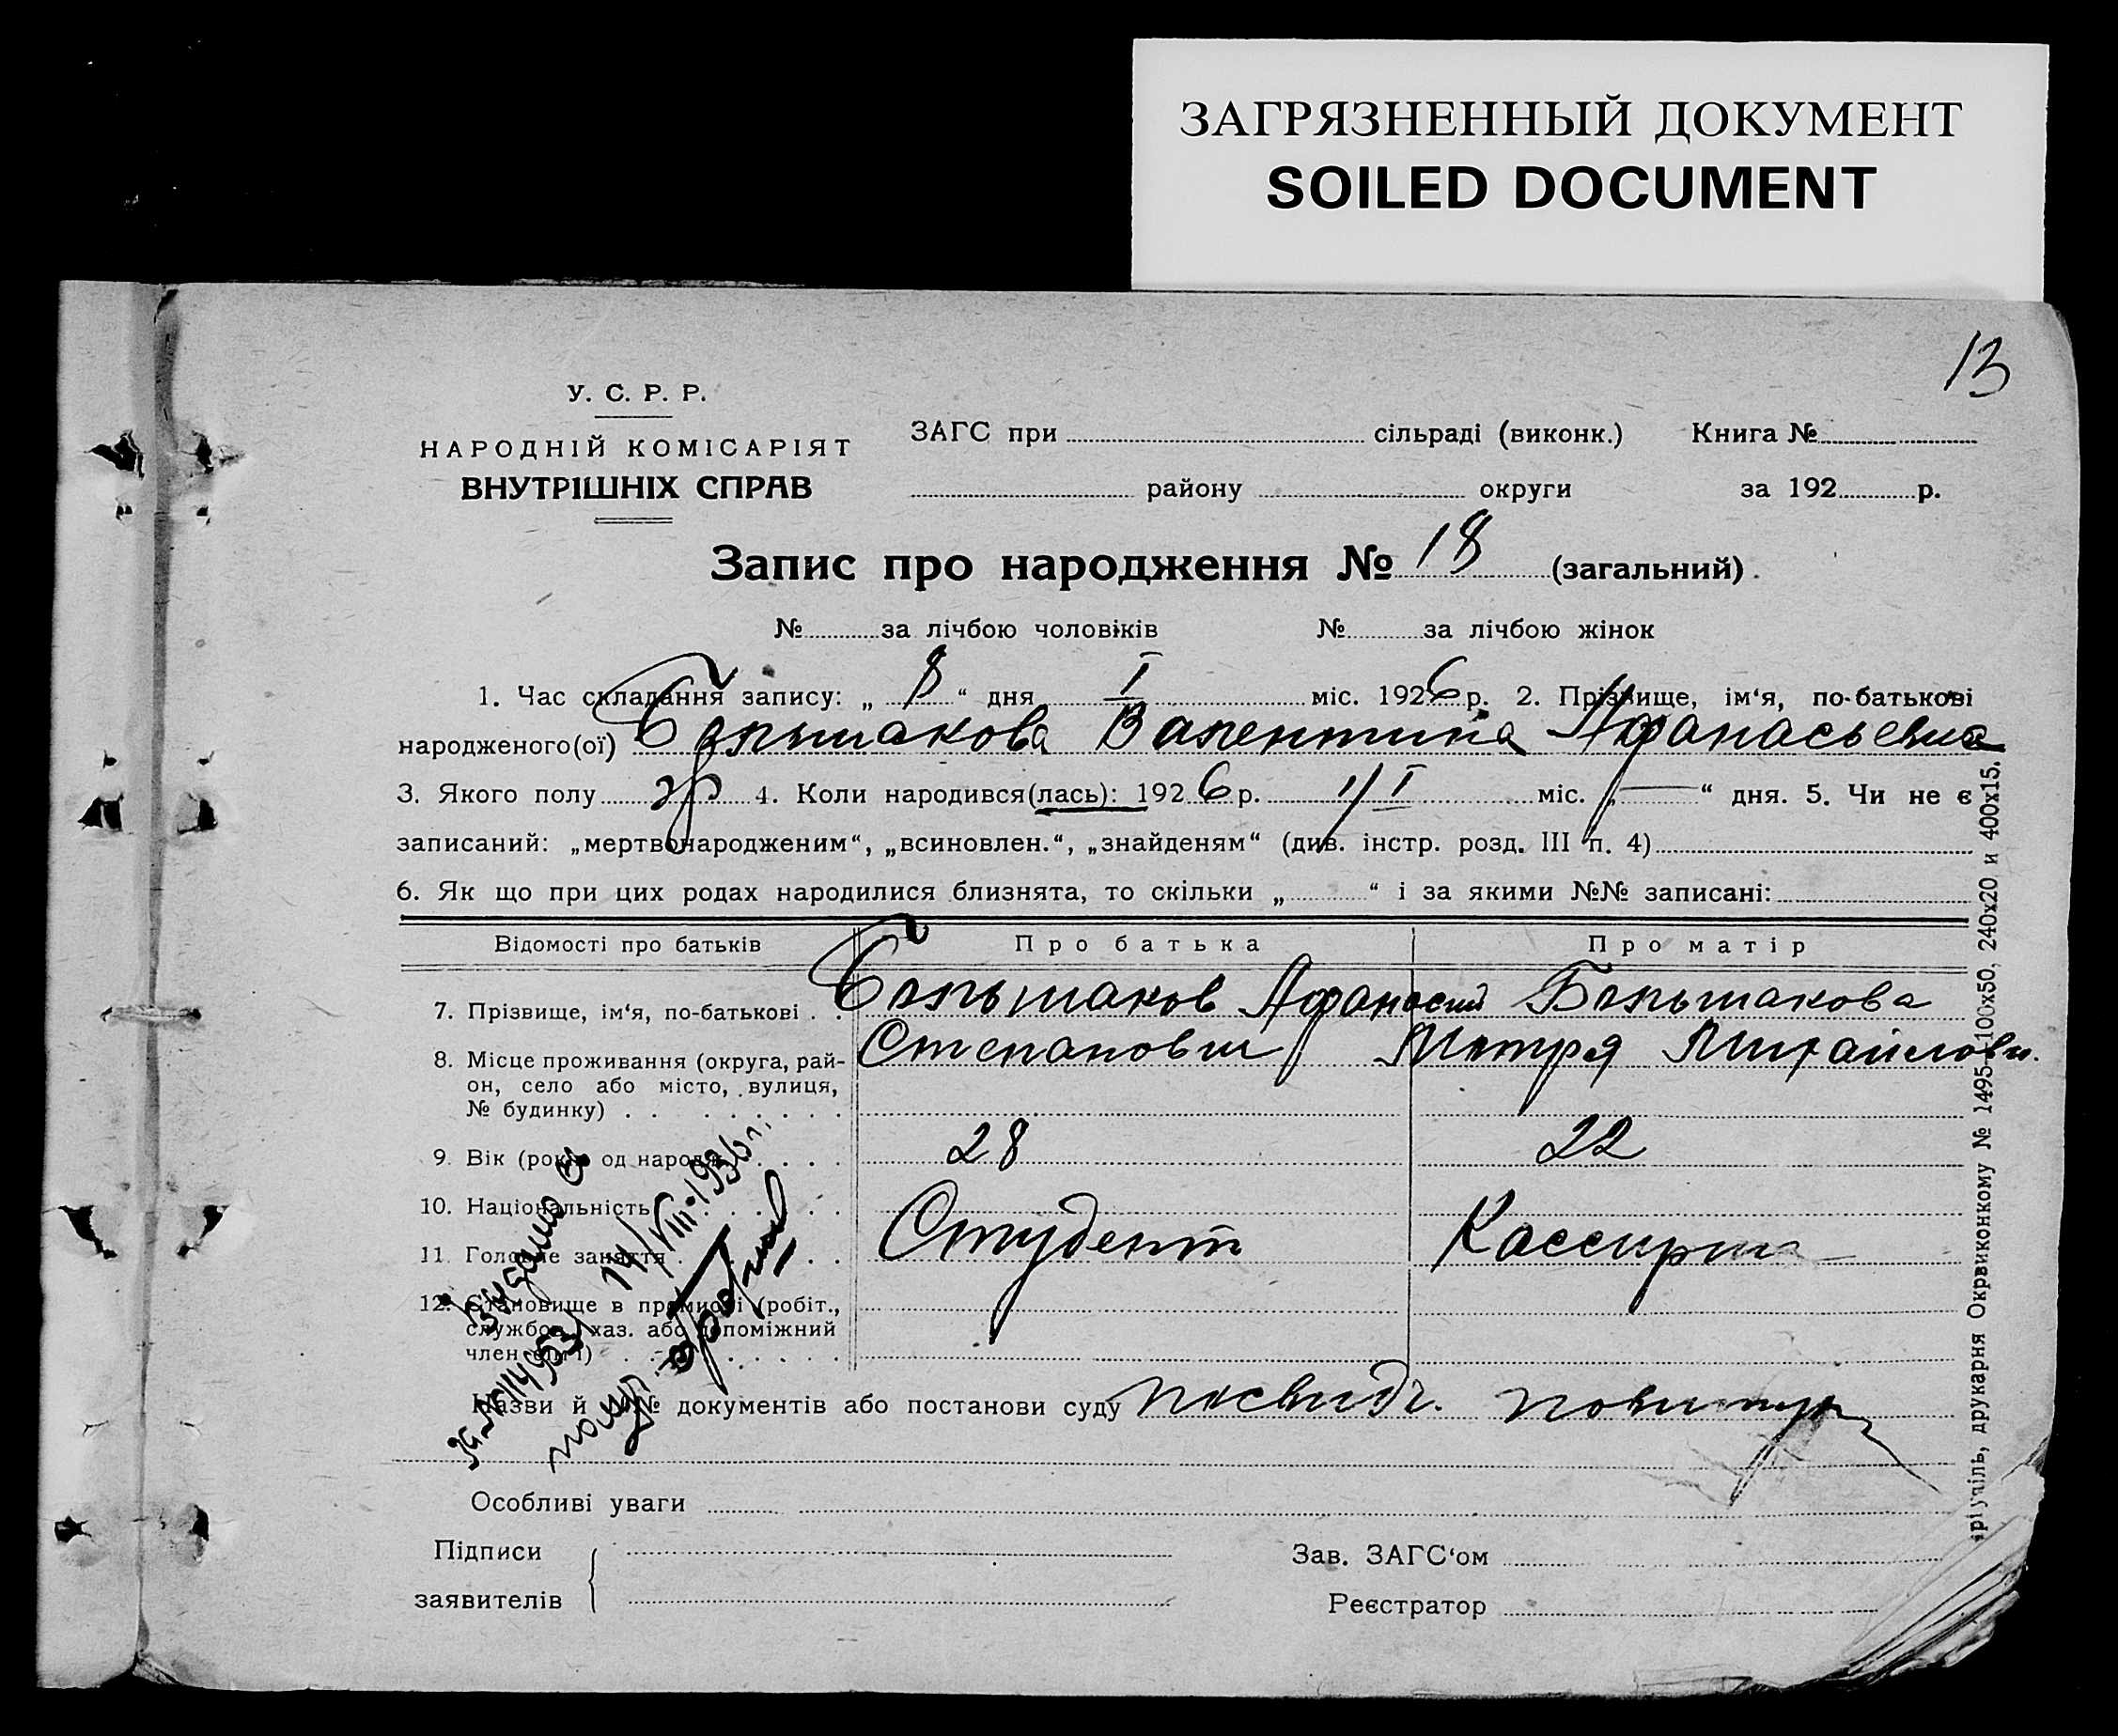 ЗАГРЯЗНЕННЫЙ ДОКУМЕНТ
SOILED DOCUMENT
13
У. С. Р. Р.
НАРОДНІЙ КОМІСАРІЯТ
ВНУТРІШНІХ СПРАВ
ЗАГС при сільраді (виконк.) Книга №
району округи за 192 р.
Запис про народження № 18 (загальний).
№ за лічбою чоловіків № за лічбою жінок
1. Час складання запису: „ 8 “ дня I міс. 1926 р. 2. Прізвище, ім‘я, по-батькові
народженого(ої) Большакова Валентина Афанасьевна
3. Якого полу 4. Коли народився(лась): 1926 р. 1/I міс. „ — “ дня. 5. Чи не є
записаний: „мертвонародженим“, „всиновлен.“, „знайденям“ (див. інстр. розд. III п. 4)
6. Як що при цих родах народилися близнята, то скільки „ “ і за якими №№ записані:
Відомості про батьків Про батька Про матір
7. Прізвище, ім‘я, по-батькові . . Большаков Афанасий Большакова
Степанович Михайловн.
8. Місце проживання (округа, рай-
он, село або місто, вулиця,
№ будинку) . .
9. Вік (років од народж. 28 22
10. Національність
11. Головне заняття Студент Кассирша
12. Становище в промислі (робіт.,
службов., хаз. або допоміжний
член сім‘ї)
Видано
14/VIII-1936 г.
Назви й №№ документів або постанови суду посвидч.
Особливі уваги
Підписи
заявителів
Зав. ЗАГС‘ом
Реєстратор
друкарня Окрвиконкому № 1495-100х50, 240х20 и 400х15.